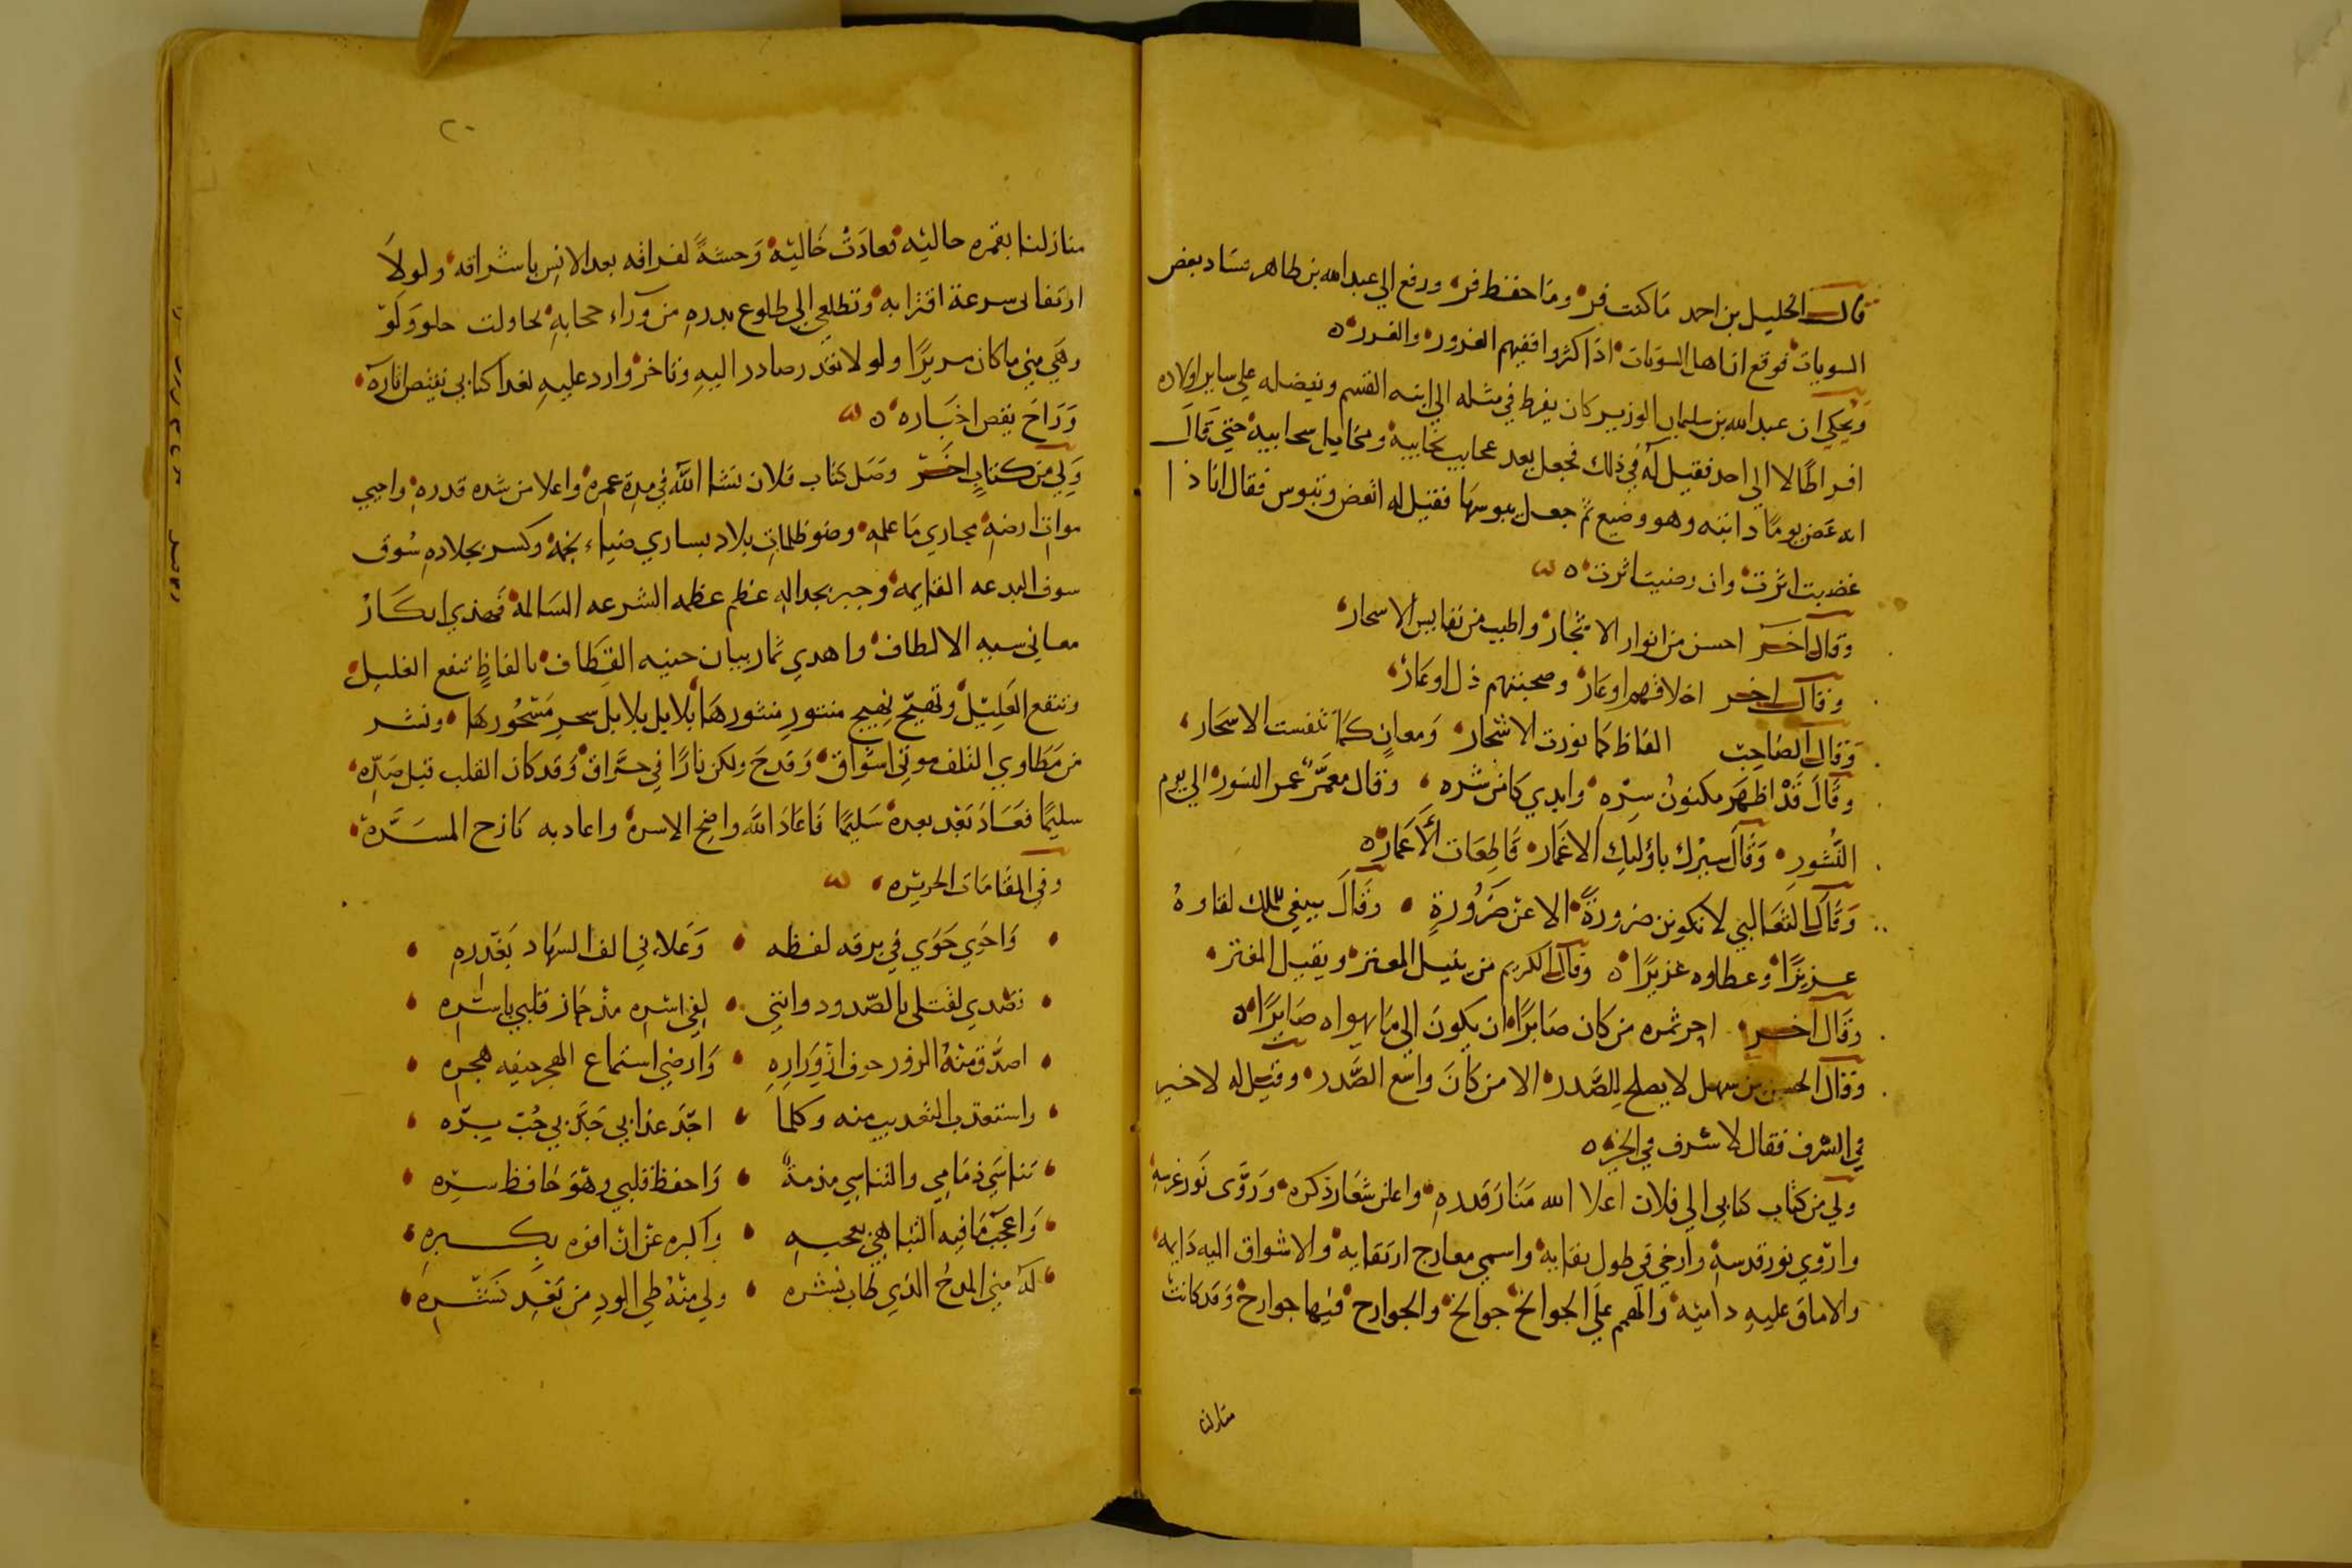 قال الخليل بن احمد مَا كتب فر، ومَا حفظ قر، ورفع الي عبد الله بن طاهر فسَاد بعض
السويات فوقع انا هل السويات اذا كثروا ففيهم الغرور، والغرر ه
وَيحكي ان عبد الله بن سليمان الوزير كان يفرط في مثله الي ابنه القسم ويفضله علي ساير اولاده
افراطًا لا الي احد فقيل لَه في ذلك فجعل يعد عجايب نجايبه ومخايل سحايبه، حتي قَالَ
انه عَض يومًا دابته وهو وضيع ثم جعل يبوسها فقيل له اتعض وتبوس فقال انا ذا
غضبت اثرت، وان رضيت اثرت ه
وَقال اخر احسن من انوار الاشجار، واطيب من نفايس الاسحار،
وَقال اخر اخلاقهم اوعَار، وصحبتهم ذل اوعَار،
وَقال الصَاحِب الفاظ كما نورت الاشجار، وَمعانٍ كمَا تنفست الاسحَار،
وقَالَ قَدْ اظهَر مكنون سِرّه، وابدي كامن شَره، وقال معمَّر عمر النسور، الي يوم
النُشورِ، وَقَالَ سيْرك باوليك الاغمَار، قاطِعَات الأعَمار ه
وَقَالَ الثعَالبي لا تكونن ضرورةً، الا عن ضَرُورةٍ، وقَالَ ينبغي للملك لقاوهُ
عزيزًا، وعطاوه غزيرًا ه وقال الكريم من ينيل المعتر، ويقيل المغتر،
وقَال اخر، اجر ثمره من كان صَابرًا، ان يكونَ الي مَا يهواه صَابرًا ه
وَقال الحسن بن سهل لا يصلح للصَّدر، الا من كَانَ واسع الصَّدر، وقيل له لا خير
في السرف فقال لا سَرف في الخير ه
ولي من كتاب كتابي الي فلان اعلا الله مَنَار قدره، واعلن شعَار ذكره، ورَوَّى نَور غرسه،
واروي نور قدسه، وارخي في طول بقايه، واسمي معارج ارتقايه، والاشواق اليه دَايمه،
والاماق عليهِ داميَه، والهمم علَي الجوانح جوانح، والجوارح فيها جوارح، وَقد كانتْ
منازلنا
٢٠
منازلنا بقمره حاليَه فعادَتْ خَاليَة، وَحشَةً لفراقه بعد الانس باشراقه، ولولاَ
ارتقابى سرعة اقترابه، وتطلعي الي طلوع بدرهِ من وَراء حجابهِ، لحاولت حلو وَلَوْ
وهَي مني ما كان مريرًا ولولا تقدر صادر اليهِ وتاخر وارد عليهِ لغدا كتابي يقتص اثاره،
وَرَاحَ يقص اخبَاره، ه
وَلي من كتابٍ اخَر وصَل كتاب فلان نسَا اللهُ في مدة عمره، واعلا من شده قدرهِ، واحيي
موات ارضهِ بمجاري مَا علمهِ، وضو ظلمات بلاد بساري ضيَاء نجمهِ، وكسر بجلادهِ سُوق
سوق البدعه القايمه، وجبر بجدالهِ عظم عظمه الشرعه السَالمة، فهدي ابكَارْ
معاني سيبه الالطاف، واهدي ثمار بيان جنيه القِطَاف، بالفاظٍ تنقع الغليل،
وتنفع العَليْل، وتهيّج بهيج منثورِ منثورهَا، بلابل بلابل سحرِ مَسْحُورهَا، ونشر
من مَطاوي التلف موتي اسْواق، وَقدحَ ولكن نارًا في حرَّاق، وَقد كان القلب قبل صَدّه،
سليمًا فعَادَ بَعْد بعدهِ سَليمًا فَاعَادَ الله واضح الاسرة، واعاد به نازح المسَرَّة،
وفي المقَامَات الحريريَّه،
وَاحوي حَوَي رقي برقه لفظه، وَغَادرني الف السهَاد بغَدره،
تصَدي لقتلي بالصّدود وانني، لفي اسْره مذ حَاز قلبي باسْره،
اصدّق منهُ الزور خوف ازْورَارهِ، وَارضي استماع الهجر خيفه هجره،
واستعذب التعذيب منه وكلما، اجَد عذابي جَدَّ بي حُبّ برّه،
تنَاسَي ذمَامِي والتناسي مذمةٌ، وَاحفظ قلبي وهْوَ حَافظ سرّه،
وَاعجبُ مَا فيه التبَاهي بعجبهِ، واكبره عَن انْ افوه بكبرهِ،
له مني المدحُ الذي طاب نشره، ولي منْهُ طي الودِ من بَعْدِ نَشرِه،